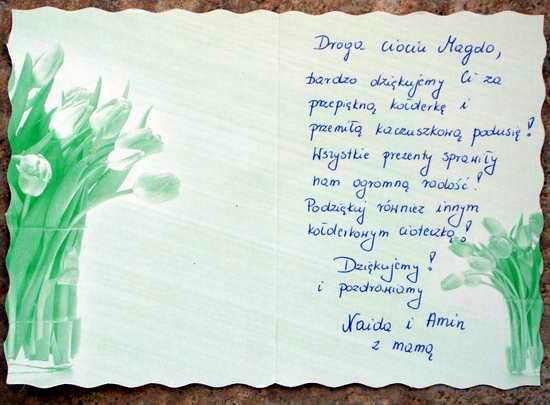 Droga ciociu Magdo,
bardzo dziękujemy Ci za
przepiękną kołderkę i
przemiłą kaczuszkową podusię!
Wszystkie prezenty sprawiły
nam ogromną radość!
Podziękuj również innym
kołderkowym cioteczką!
Dziękujemy!
i pozdrawiamy
Naida i Amin
z mamą